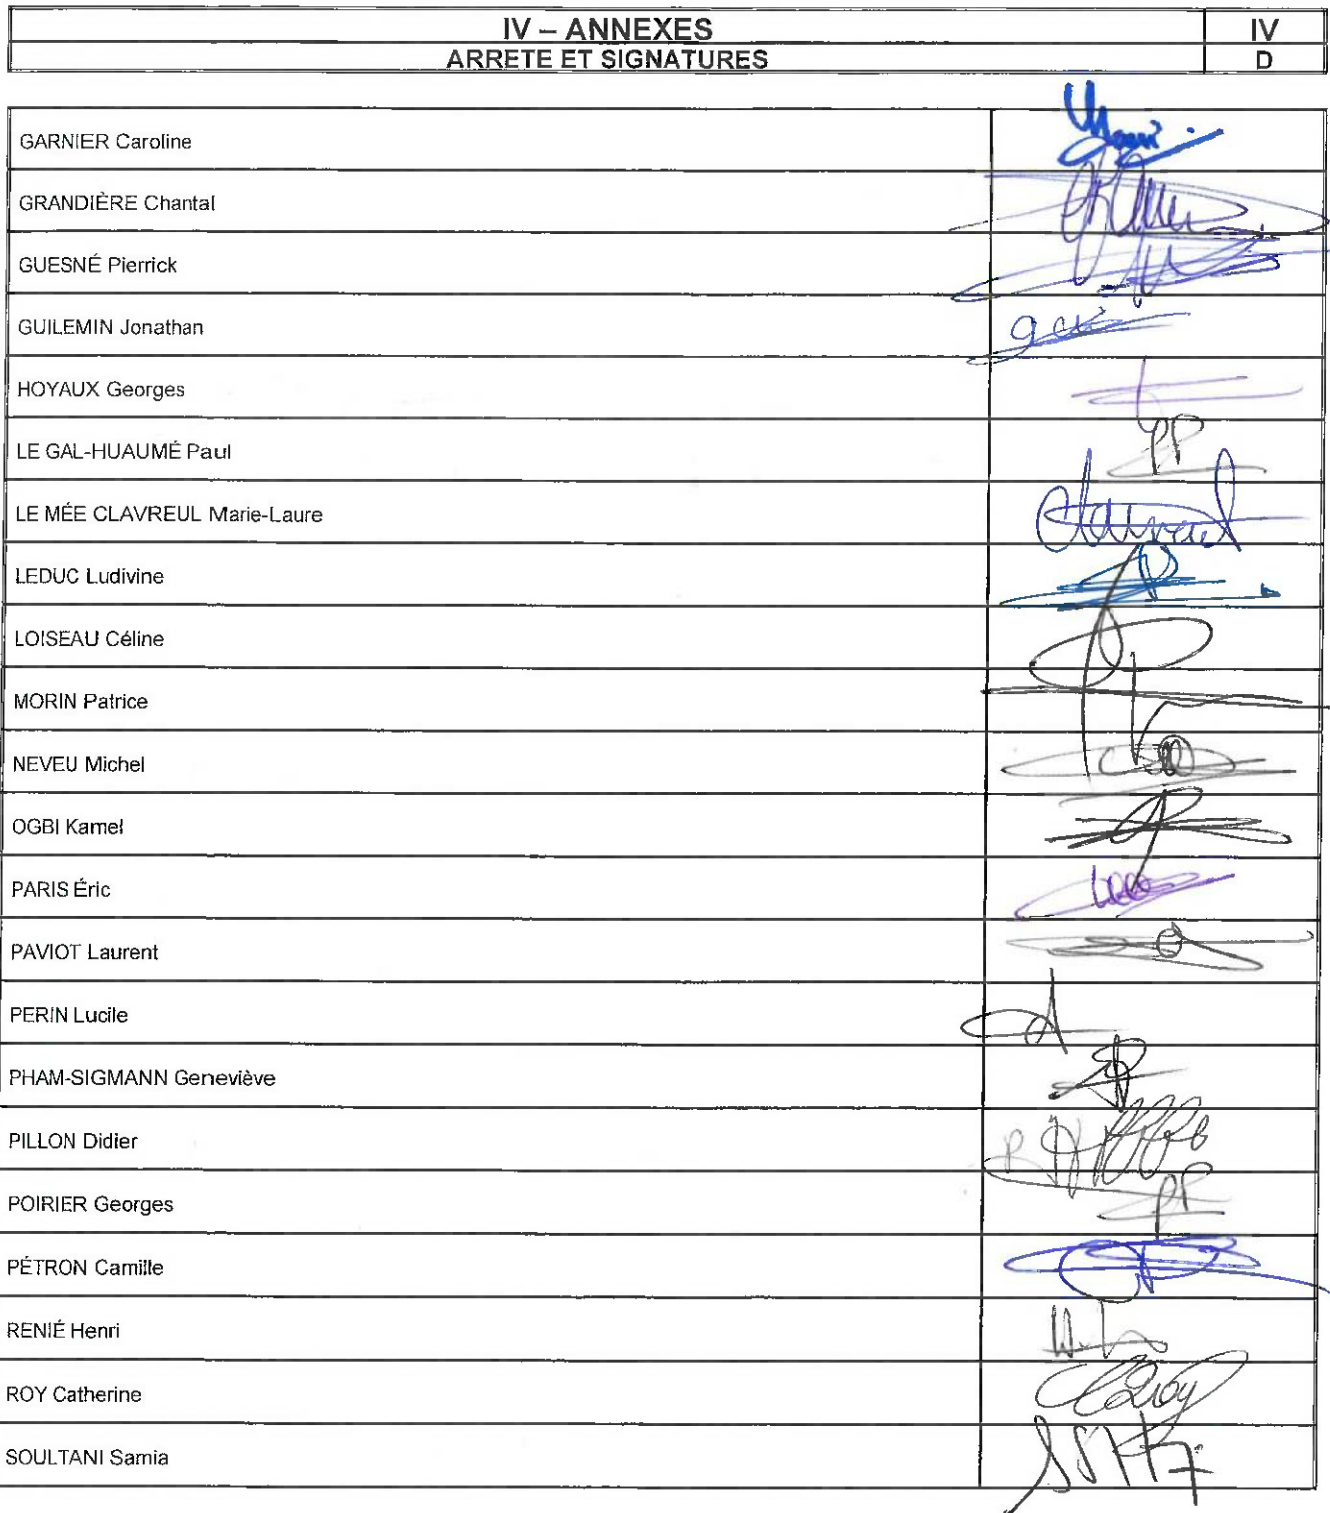 IV – ANNEXES IV
ARRETE ET SIGNATURES D
GARNIER Caroline
GRANDIÈRE Chantal
GUESNÉ Pierrick
GUILEMIN Jonathan
HOYAUX Georges
LE GAL-HUAUMÉ Paul PP
LE MÉE CLAVREUL Marie-Laure
LEDUC Ludivine
LOISEAU Céline
MORIN Patrice
NEVEU Michel
OGBI Kamel
PARIS Éric
PAVIOT Laurent
PERIN Lucile
PHAM-SIGMANN Geneviève
PILLON Didier
POIRIER Georges PP
PÉTRON Camille
RENIÉ Henri
ROY Catherine
SOULTANI Samia